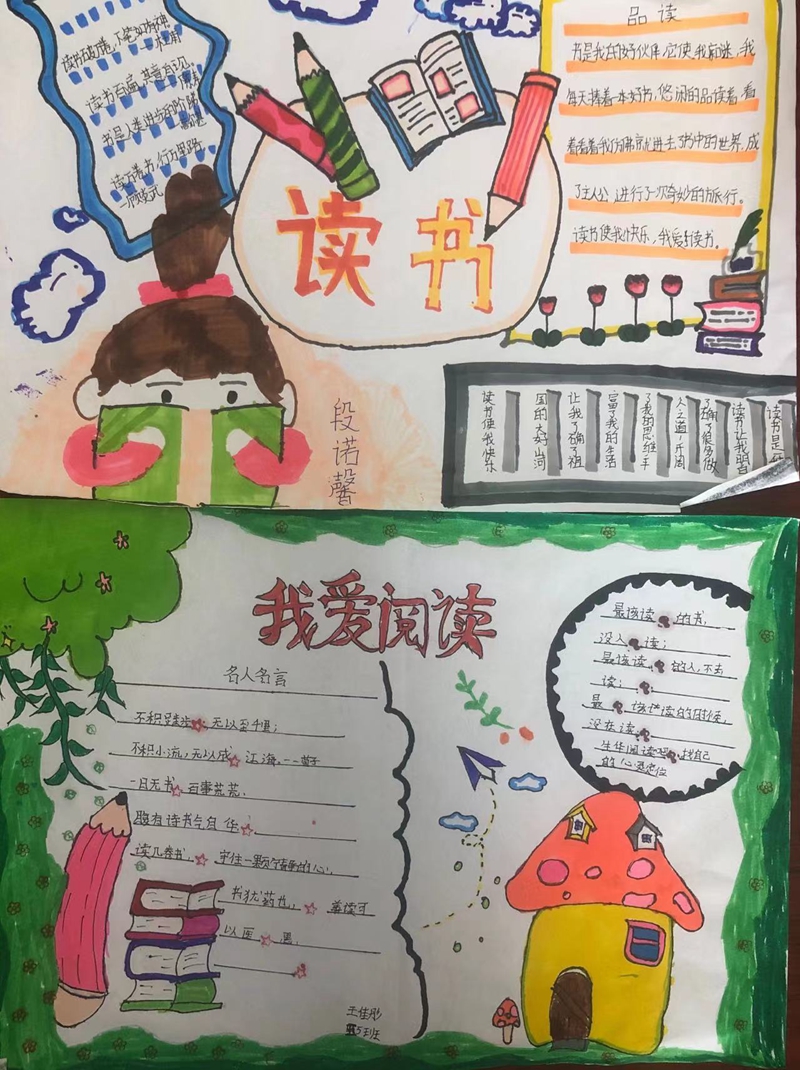 读书破万卷,下笔如有神
读书百遍,其意自见
书是人类进步的阶梯
读万卷书,行万里路
读书
品读
书是我的好伙伴,它使我着迷,我
每天捧着一本好书,悠闲的品读着,看
着看着我仿佛忧进去了书中的世界,成
了主人公,进行了一次奇妙的旅行。
读书使我快乐,我爱读书。
段诺馨
读书使我快乐
让我了解了祖
国的大好山河
富了我的生活
了我的思维丰
人之道,开阔
了解了很多做
读书让我明白
我爱阅读
名人名言
不积跬步 无以至千里;
不积小流,无以成 江海。——荀子
一日无书 百事荒芜.
腹有诗书气自华
读几卷书, 守住一颗 的心.
书犹药也, 善读可
以医 愚.
王佳彤
5班
最该读 的书,
没人 读;
最该读 的人,不去
读;
最 该 读的时候,
没在读。
找自己
的心灵